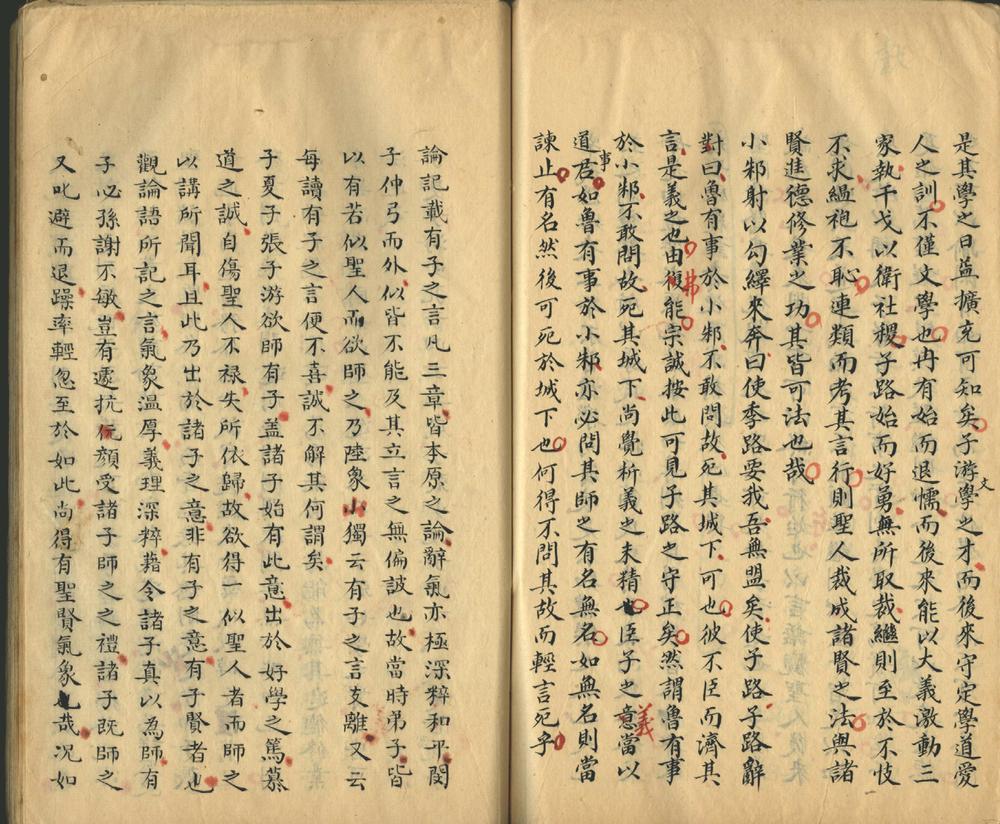 是其學之日益擴充可知矣子游文學之才而後來守定學道愛
人之訓不僅文學也冉有始而退懦而後來能以大義激動三
家執干戈以衛社稷子路始而好勇無所取裁繼則至於不忮
不求縕袍不恥連類而考其言行則聖人裁成諸賢之法與諸
賢進德修業之功其皆可法也哉
小邾射以勾繹來奔曰使季路要我吾無盟矣使子路子路辭
對曰魯有事於小邾不敢問故死其城下可也彼不臣而濟其
言是義之也由弗能宗誠按此可見子路之守正矣然謂魯有事
於小邾不敢問故死其城下尚覺析義之未精也臣子之義當以
道事君如魯有事於小邾亦必問其師之有名無名如無名則當
諫止有名然後可死於城下也何得不問其故而輕言死乎
論記載有子之言凡三章皆本原之論辭氣亦極深粹和平閔
子仲弓而外似皆不能及其立言之無偏詖也故當時弟子皆
以有若似聖人而欲師之乃陸象山獨云有子之言支離又云
每讀有子之言便不喜誠不解其何謂矣
子夏子張子游欲師有子蓋諸子始有此意出於好學之篤慕
道之誠自傷聖人不祿失所依歸故欲得一似聖人者而師之
以講所聞耳且此乃出於諸子之意非有子之意有子賢者也
觀論語所記之言氣象溫厚義理深粹藉令諸子真以為師有
子必孫謝不敏豈有遽抗顏受諸子師之之禮諸子既師之
又叱避而退躁率輕忽至於如此尚得有聖賢氣象也哉況如